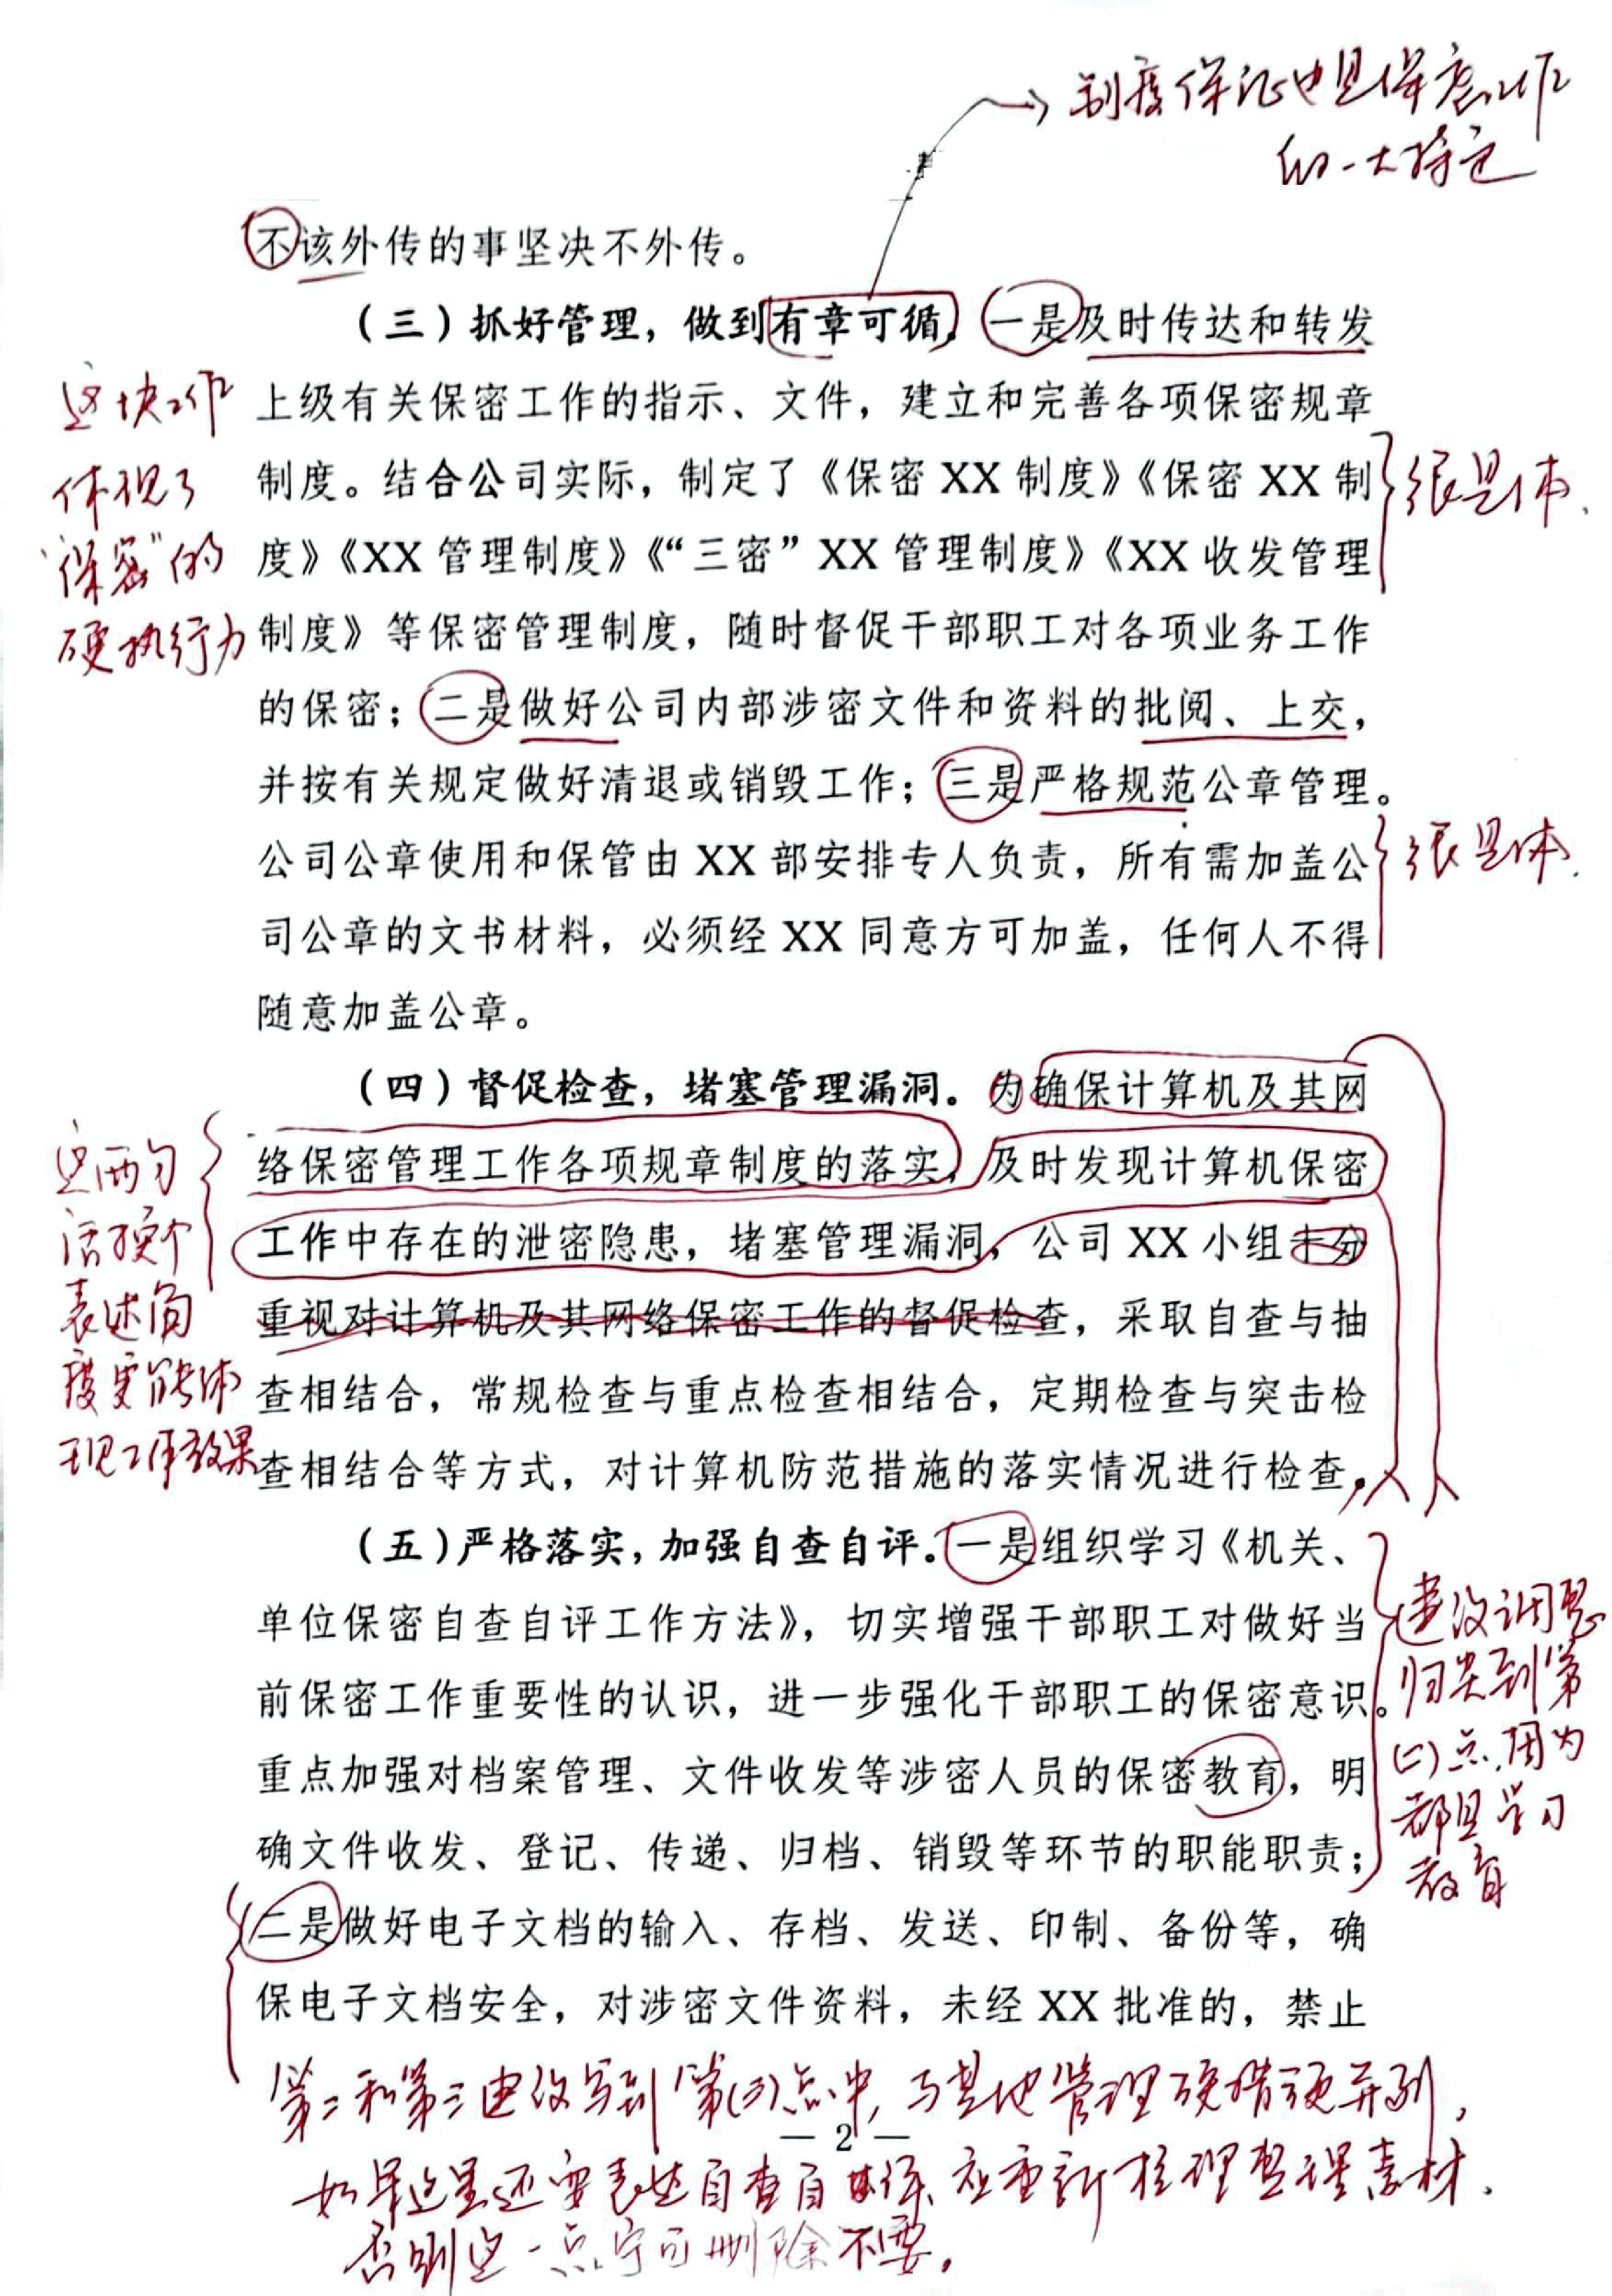 制度保证也是保密工作
的一大特色
不该外传的事坚决不外传。
（三）抓好管理，做到有章可循。一是及时传达和转发
上级有关保密工作的指示、文件，建立和完善各项保密规章
制度。结合公司实际，制定了《保密 XX 制度》《保密 XX 制
度》《XX 管理制度》《“三密” XX 管理制度》《XX 收发管理
制度》等保密管理制度，随时督促干部职工对各项业务工作
的保密；二是做好公司内部涉密文件和资料的批阅、上交，
并按有关规定做好清退或销毁工作；三是严格规范公章管理。
公司公章使用和保管由 XX 部安排专人负责，所有需加盖公
司公章的文书材料，必须经 XX 同意方可加盖，任何人不得
随意加盖公章。
这块工作
体现了
“保密”的
硬执行力
很具体.
很具体.
（四）督促检查，堵塞管理漏洞。为确保计算机及其网
络保密管理工作各项规章制度的落实，及时发现计算机保密
工作中存在的泄密隐患，堵塞管理漏洞，公司 XX 小组十分
重视对计算机及其网络保密工作的督促检查，采取自查与抽
查相结合，常规检查与重点检查相结合，定期检查与突击检
查相结合等方式，对计算机防范措施的落实情况进行检查，
这两句
话换个
表述角
度更能体
现工作效果
（五）严格落实，加强自查自评。一是组织学习《机关、
单位保密自查自评工作方法》，切实增强干部职工对做好当
前保密工作重要性的认识，进一步强化干部职工的保密意识。
重点加强对档案管理、文件收发等涉密人员的保密教育，明
确文件收发、登记、传递、归档、销毁等环节的职能职责；
二是做好电子文档的输入、存档、发送、印制、备份等，确
保电子文档安全，对涉密文件资料，未经 XX 批准的，禁止
建议调整
归类到第
(二)点.因为
都是学习
教育
第二和第三建议写到第(三)点中，与其他管理硬措施并列，
— 2 —
如果这里还要表达自查自评，应重新梳理整理素材.
否则这一点宁可删除不要。